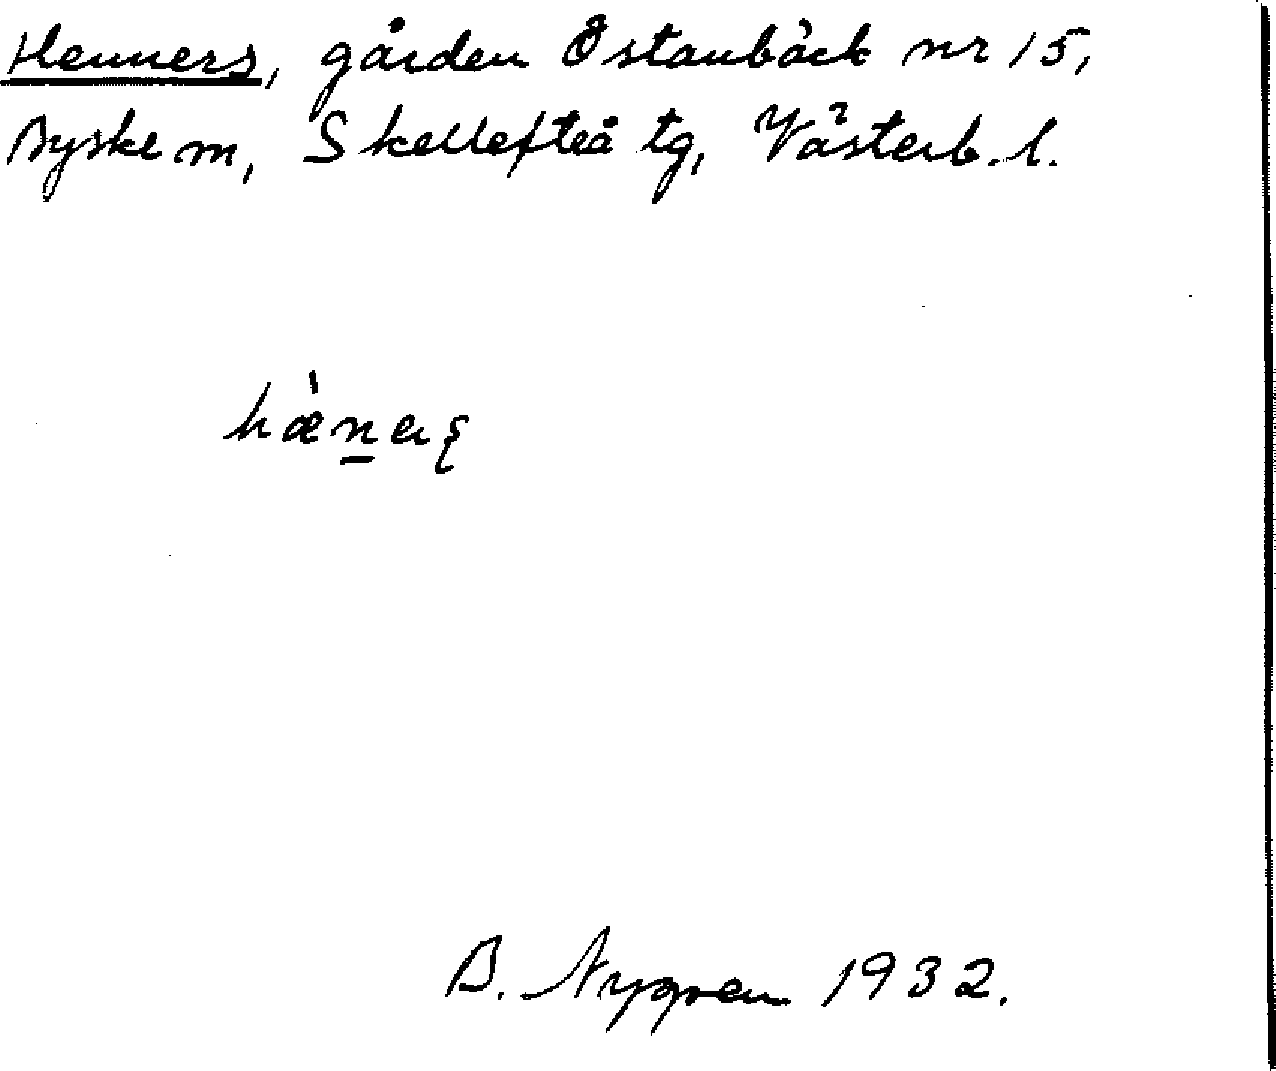 Henners, gården Östanbäck nr 15,
Byske m, Skellefteå tg, Västerb. l.
hæ̀n̲aʂ
B. Nygren 1932.